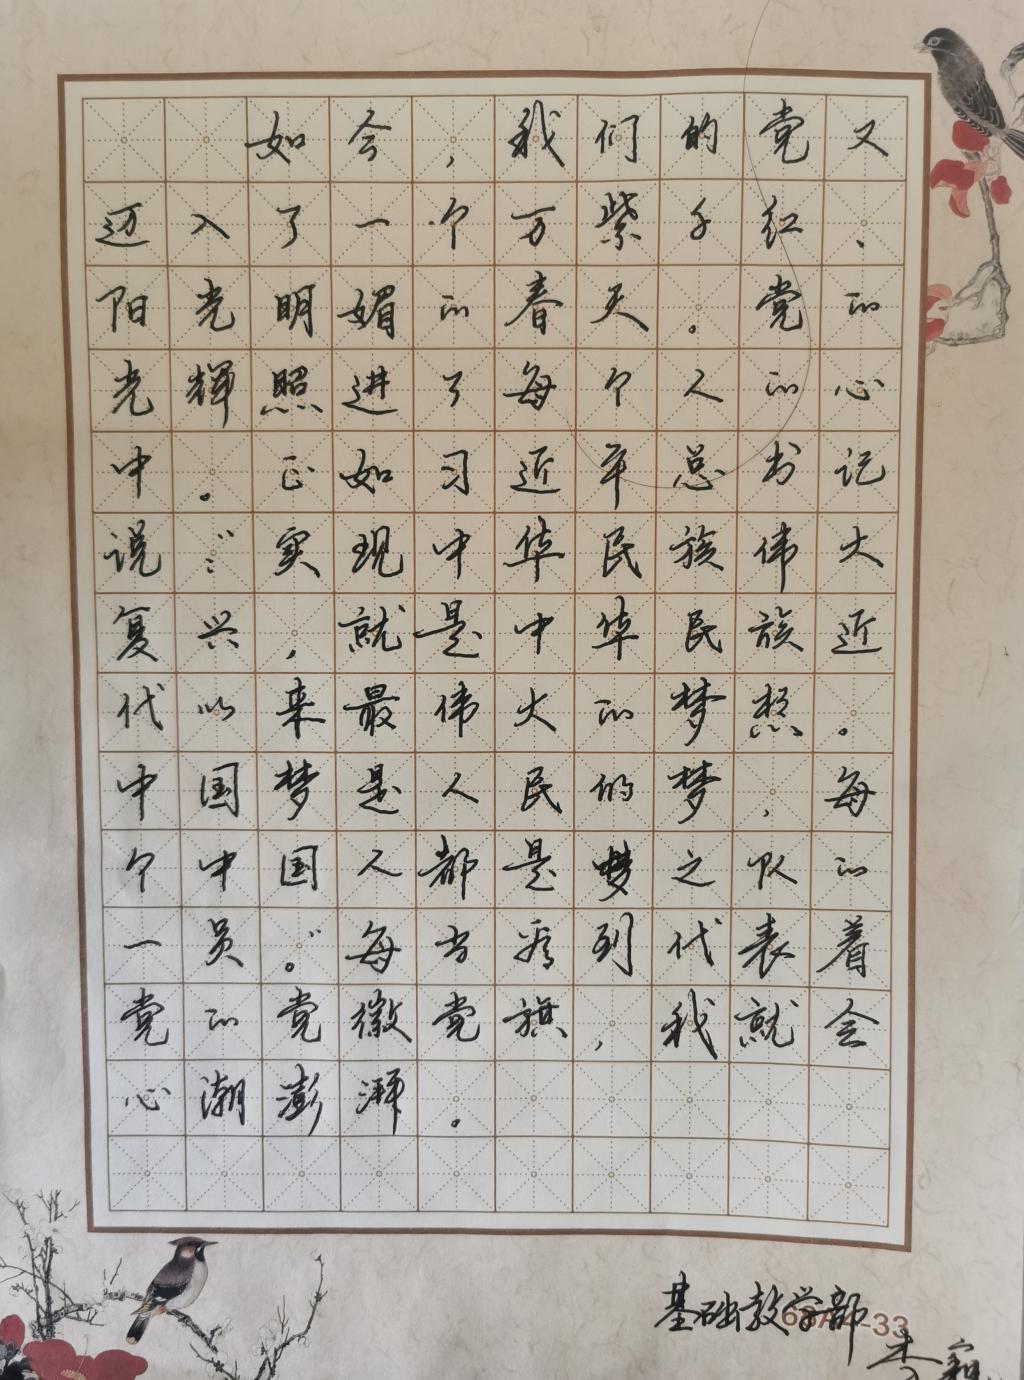 如今，我们的党又
迈入了一个万紫千红、
阳光明媚的春天。党的
光辉照进了每个人的心
中。正如习近平总书记
说：“实现中华民族伟大
复兴，就是中华民族近
代以来最伟大的梦想。
中国梦是人民的梦，每
个中国人都是梦之队的
一员。”每当看到代表着
党的党徽党旗，我就会
心潮澎湃。
基础教学部